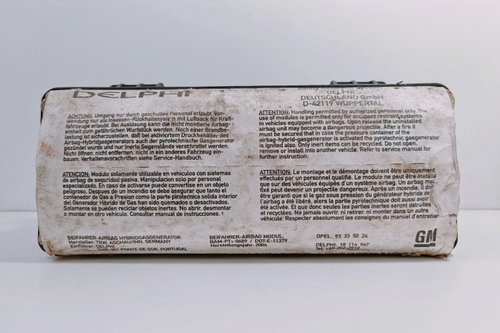 DELPHI
DELPHI
DEUTSCHLAND GmbH
D-42119 WUPPERTAL
ACHTUNG: Umgang nur durch geschultes Personal erlaubt. Ver-
wendung nur als Insassen-Rückhaltesystem mit Luftsack für Kraft-
fahrzeuge erlaubt. Bei Auslösung kann die nicht montierte Airbag-
einheit zum gefährlichen Wurfstück werden. Nach einer Brandbe-
lastung ist sicherzustellen, daß bei aktiviertem Druckbehälter der
Airbag-Hybridgasgenerators auch der pyrotechnische Gasgenerator
gezündet wurde. Nur inerte Gegenstände verschrottet werden.
Nicht öffnen, nicht entfernen, nicht in ein anderes Fahrzeug ein-
bauen. Verhaltensvorschriften siehe Service-Handbuch.
ATTENTION: Handling permitted by authorized personnel only. The
use of modules is permitted only for occupant restraint systems
in vehicles equipped with airbags. Upon release the uninstalled
airbag unit may become a dangerous projectile. After a fire it
must be secured that in case the pressure container of the
airbag-hybrid-gasgenerators is activated the pyrotechnic gasgenerator
is ignited also. Only inert items can be recycled. Do not open,
remove or install into another vehicle. Refer to service manual for
further instruction.
ATENCION: Modulo solamente utilizable en vehiculos con sistemas
de airbag de seguridad pasiva. Manipulacion solo por personal
especializado. En caso de activarse puede convertirse en un objeto
peligroso. Despues de un incendio se ha de asegurar que tanto el
contenedor de Gas a Presion como la parte pirotécnica solido interior
del Generador Hibrido de Gas han sido quemados o desactivados.
Solamente se pueden reciclar objetos inertes. No abrir, desmontar
o montar en otro vehiculo. Consultar manual de instrucciones.
ATTENTION: Le montage et le démontage doivent être uniquement
effectués par un personnel qualifié. Le module ne peut être installé
que sur des véhicules équipés d'un système airbag. Un airbag mal
fixé peut devenir un projectile dangereux. Après un incendie, il doit
être garanti que si le gaz sous pression du générateur hybride de
l'airbag a été libéré, alors la partie pyrotechnique doit aussi avoir
été activée. Et que donc seules les parties inertes seront déroulées
et recyclées. Ne jamais ouvrir, ni retirer, ni monter dans un autre
véhicule. Respecter absolument les consignes du manuel d'entretien
BEIFAHRER-AIRBAG HYBRIDGASGENERATOR
Hersteller: TRW ASCHAU/INN, GERMANY
Einführer: DELPHI
PONTE DE SOR, PORTUGAL
BEIFAHRER-AIRBAG MODUL:
BAM-PT1-0689 / DOT-E-11379
Herstellungsjahr: 2004
OPEL: 93 33 50 24
DELPHI
GM